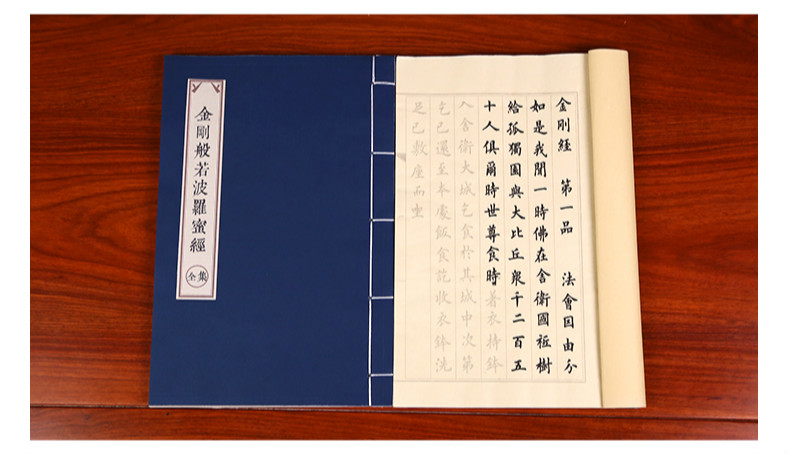 金剛般若波羅蜜經
全集
金剛經　第一品　法會因由分
如是我聞一時佛在舍衛國祗樹
給孤獨園與大比丘衆千二百五
十人俱爾時世尊食時著衣持鉢
入舍衛大城乞食於其城中次第
乞已還至本處飯食訖收衣鉢洗
足已敷座而坐